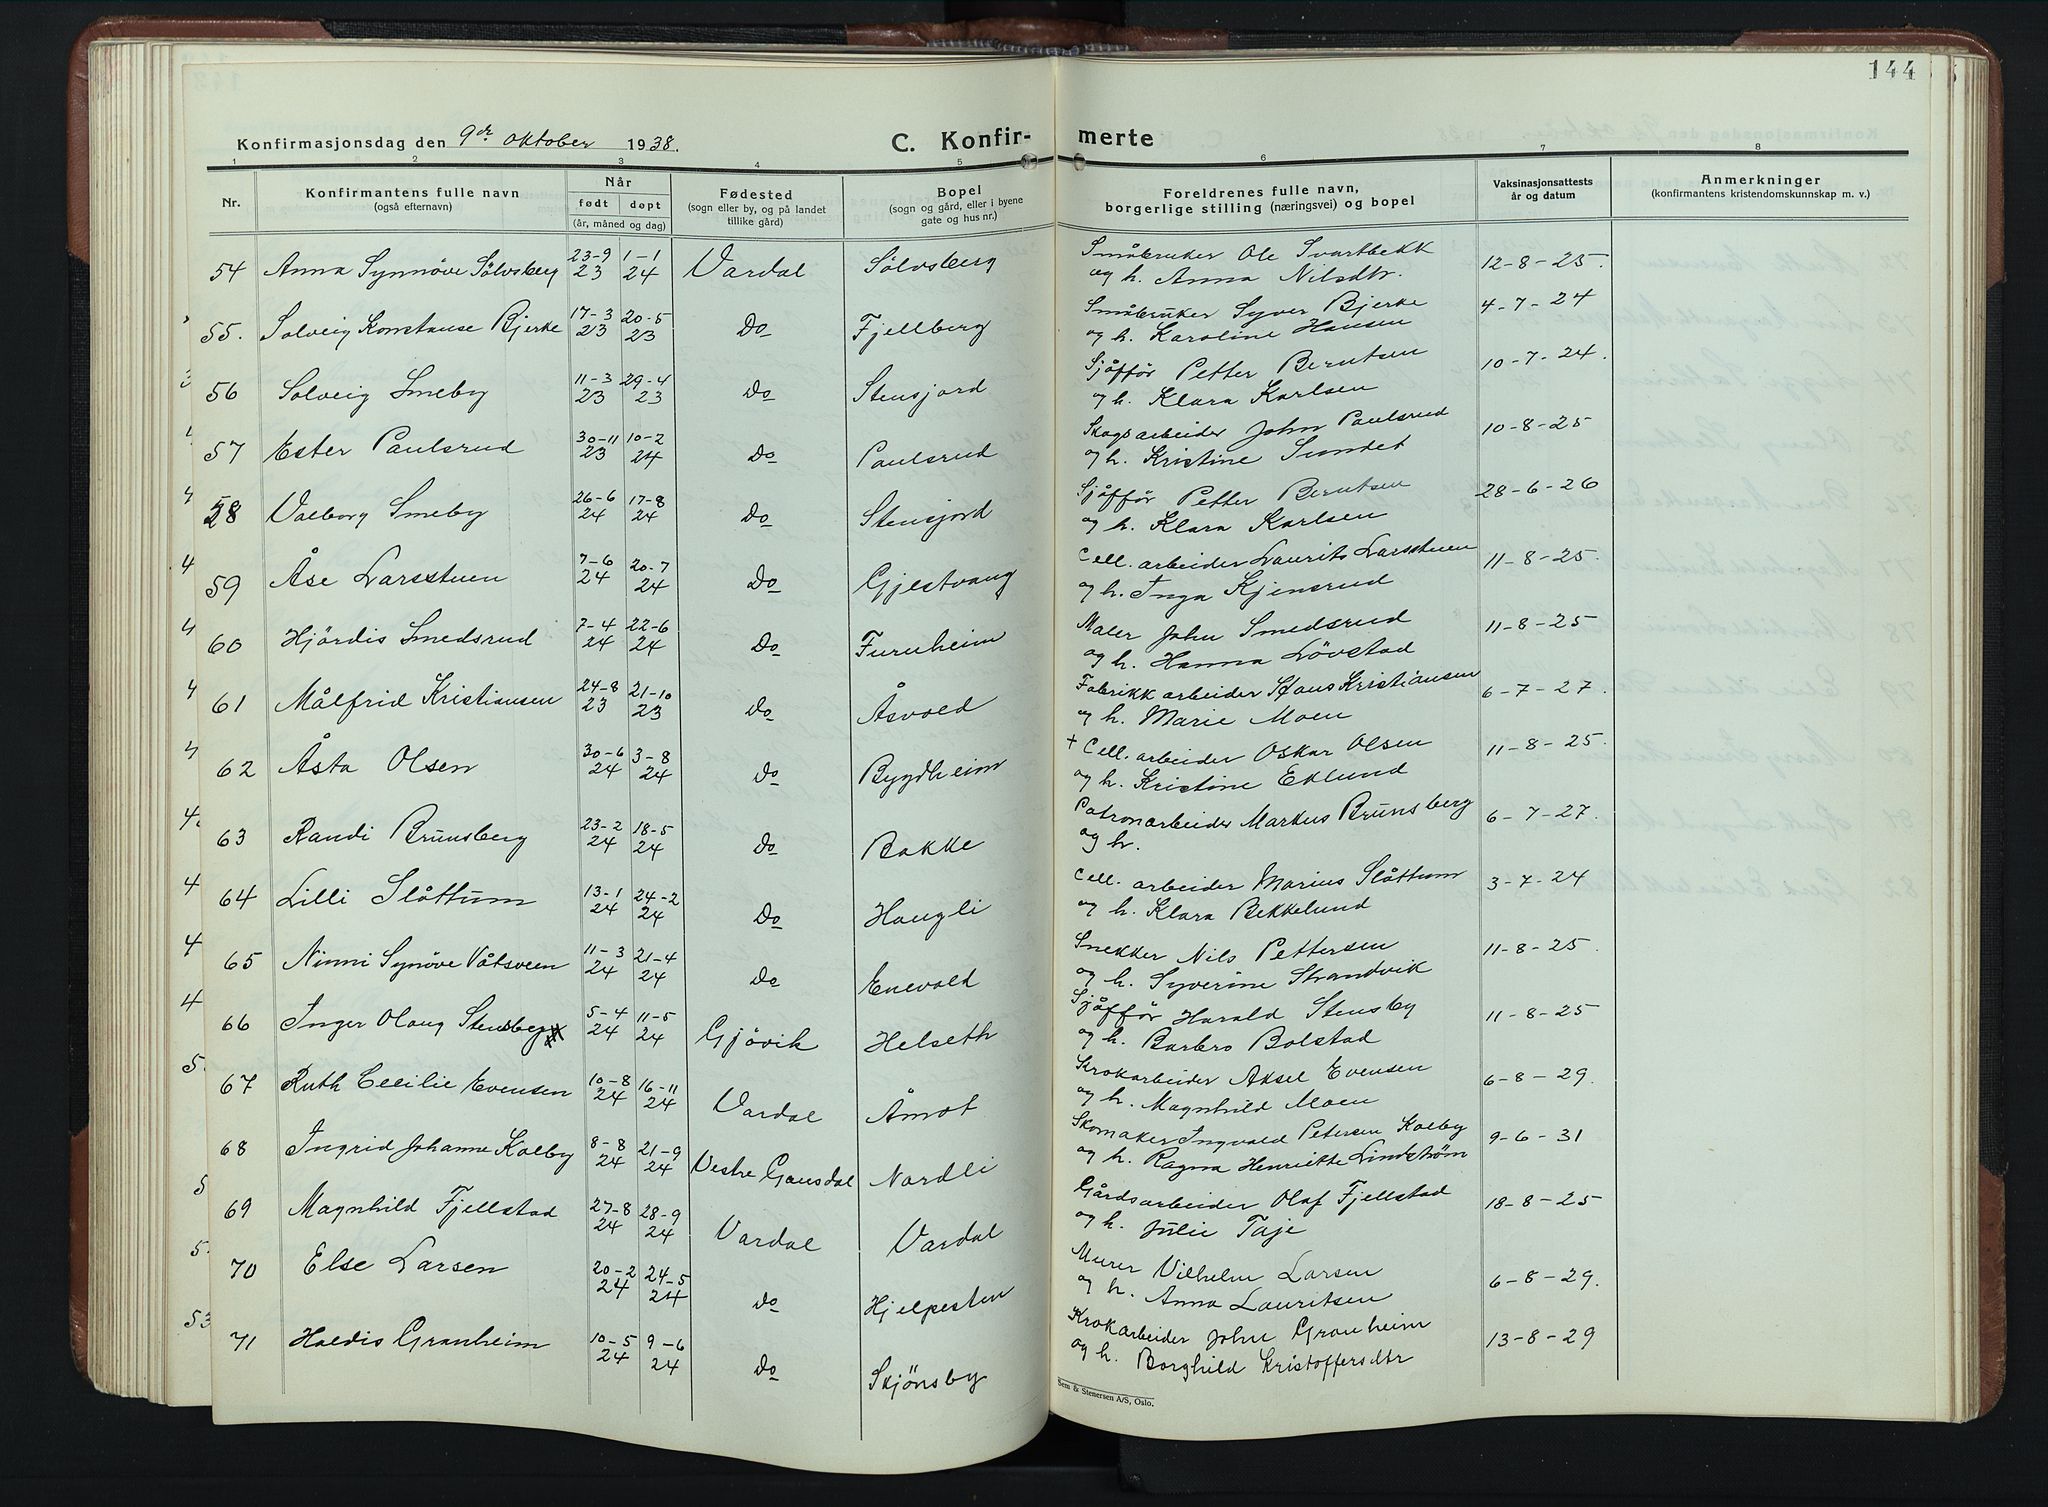 144
Konfirmasjonsdag den 9de oktober 1938.
C. Konfirmerte
1 2 3 4 5 6 7 8
Nr.
Konfirmantens fulle navn
(også efternavn)
Når
født døpt
(år, måned og dag)
Fødested
(sogn eller by, og på landet
tillike gård)
Bopel
(sogn og gård, eller i byene
gate og hus nr.)
Foreldrenes fulle navn,
borgerlige stilling (næringsvei) og bopel
Vaksinasjonsattests
år og datum
Anmerkninger
(konfirmantens kristendomskunnskap m. v.)
54 Anna Synnøve Sølvsberg 23-9 23 1-1 24 Vardal Sølvsberg Småbruker Ole Svartbekk 12-8-25.
og h. Anna Nilsdtr.
55. Solveig Konstanse Bjerke 17-3 23 20-5 23 Do Fjellberg Småbruker Syver Bjerke 4-7-24
og h. Karoline Hansen
56 Solveig Smeby 11-3 23 29-4 23 Do Stensjord Sjåffør Petter Berntsen 10-7-24.
og h. Klara Karlsen
57 Ester Paulsrud 30-11 23 10-2 24 Do Paulsrud Skogsarbeider John Paulsrud 10-8-25
og h. Kristine Sundet
58 Valborg Smeby 26-6 24 17-8 24 Do Stensjord Sjåffør Petter Berntsen 28-6-26
og h. Klara Karlsen
59 Åse Larsstuen 7-6 24 20-7 24 Do Gjestvang Cell. arbeider Laurits Larsstuen 11-8-25.
og h. Inga Kjensrud
60 Hjördis Smedsrud 7-4 24 22-6 24 Do Furuheim Maler John Smedsrud 11-8-25
og h. Hanna Lövstad
61 Målfrid Kristiansen 24-8 23 21-10 23 Do Åsvold Fabrikkarbeider Hans Kristiansen 6-7-27.
og h. Marie Moen
62 Åsta Olsen 30-6 24 3-8 24 Do Bygdheim + Cell. arbeider Oskar Olsen 11-8-25.
og h. Kristine Eklund
63 Randi Brunsberg 23-2 24 18-5 24 Do Bakke Patronarbeider Markus Brunsberg 6-7-27.
og h.
64 Lilli Slåttum 13-1 24 24-2 24 Do Haugli Cell. arbeider Marius Slåttum 3-7-24
og h. Klara Bekkelund
65 Ninni Synöve Våtsveen 11-3 24 21-4 24 Do Enevold Snekker Nils Pettersen 11-8-25.
og h. Syverine Strandvik
66 Inger Olaug Stensby 5-4 24 11-5 24 Gjövik Helseth Sjåffør Harald Stensby 11-8-25
og h. Barbro Bolstad
67 Ruth Cecilie Evensen 10-8 24 16-11 24 Vardal Åmot Krokarbeider Aksel Evensen 6-8-29.
og h. Magnhild Moen
68 Ingrid Johanne Kolby 8-8 24 21-9 24 Vestre Gausdal Nordli Skomaker Ingvald Petersen Kolby 9-6-31
og h. Ragna Henriette Lindström
69 Magnhild Fjellstad 27-8 24 28-9 24 Vardal Vardal Gårdsarbeider Olaf Fjellstad 18-8-25
og h. Julie Taje
70 Else Larsen 20-2 24 24-5 24 Do Hjelpesten Murer Vilhelm Larsen 6-8-29.
og h. Anna Lauritsen
71 Haldis Granheim 10-5 24 9-6 24 Do Skjönsby Krokarbeider John Granheim 13-8-29
og h. Borghild Kristoffersdtr
Sem & Stenersen A/S, Oslo.